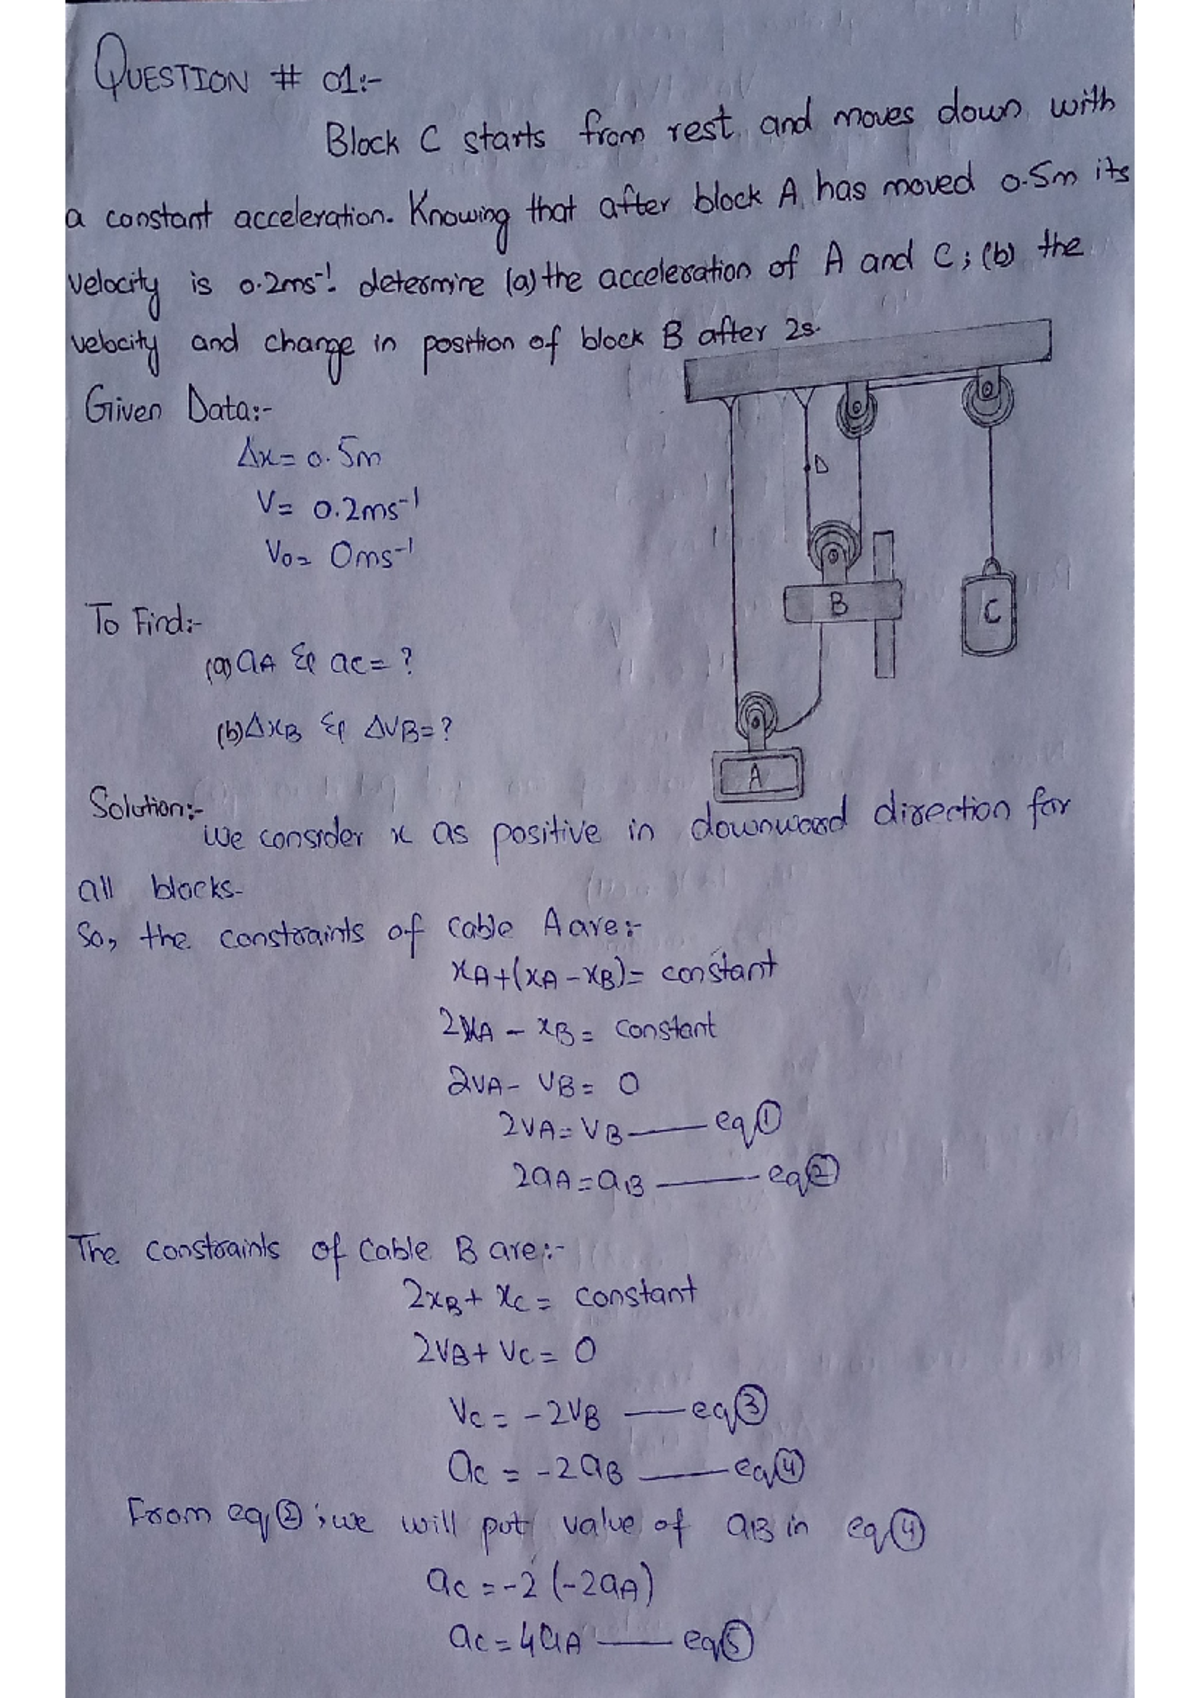 QUESTION # 01:-
Block C starts from rest and moves down with
a constant acceleration. Knowing that after block A has moved 0.5m its
velocity is 0.2ms⁻¹. determine (a) the acceleration of A and C; (b) the
velocity and change in position of block B after 2s.
Given Data:-
Δx = 0.5m
V = 0.2ms⁻¹
V₀ = 0ms⁻¹
D
To Find:-
B
C
(a) aA & aC = ?
(b) ΔxB & ΔVB = ?
A
Solution:-
We consider x as positive in downward direction for
all blocks.
So, the constraints of cable A are:-
xA + (xA - xB) = constant
2xA - xB = constant
2VA - VB = 0
2VA = VB —— eq①
2aA = aB —— eq②
The constraints of cable B are:-
2xB + xC = constant
2VB + VC = 0
VC = -2VB —— eq③
aC = -2aB —— eq④
From eq② ; we will put value of aB in eq④
aC = -2 (-2aA)
aC = 4aA —— eq⑤